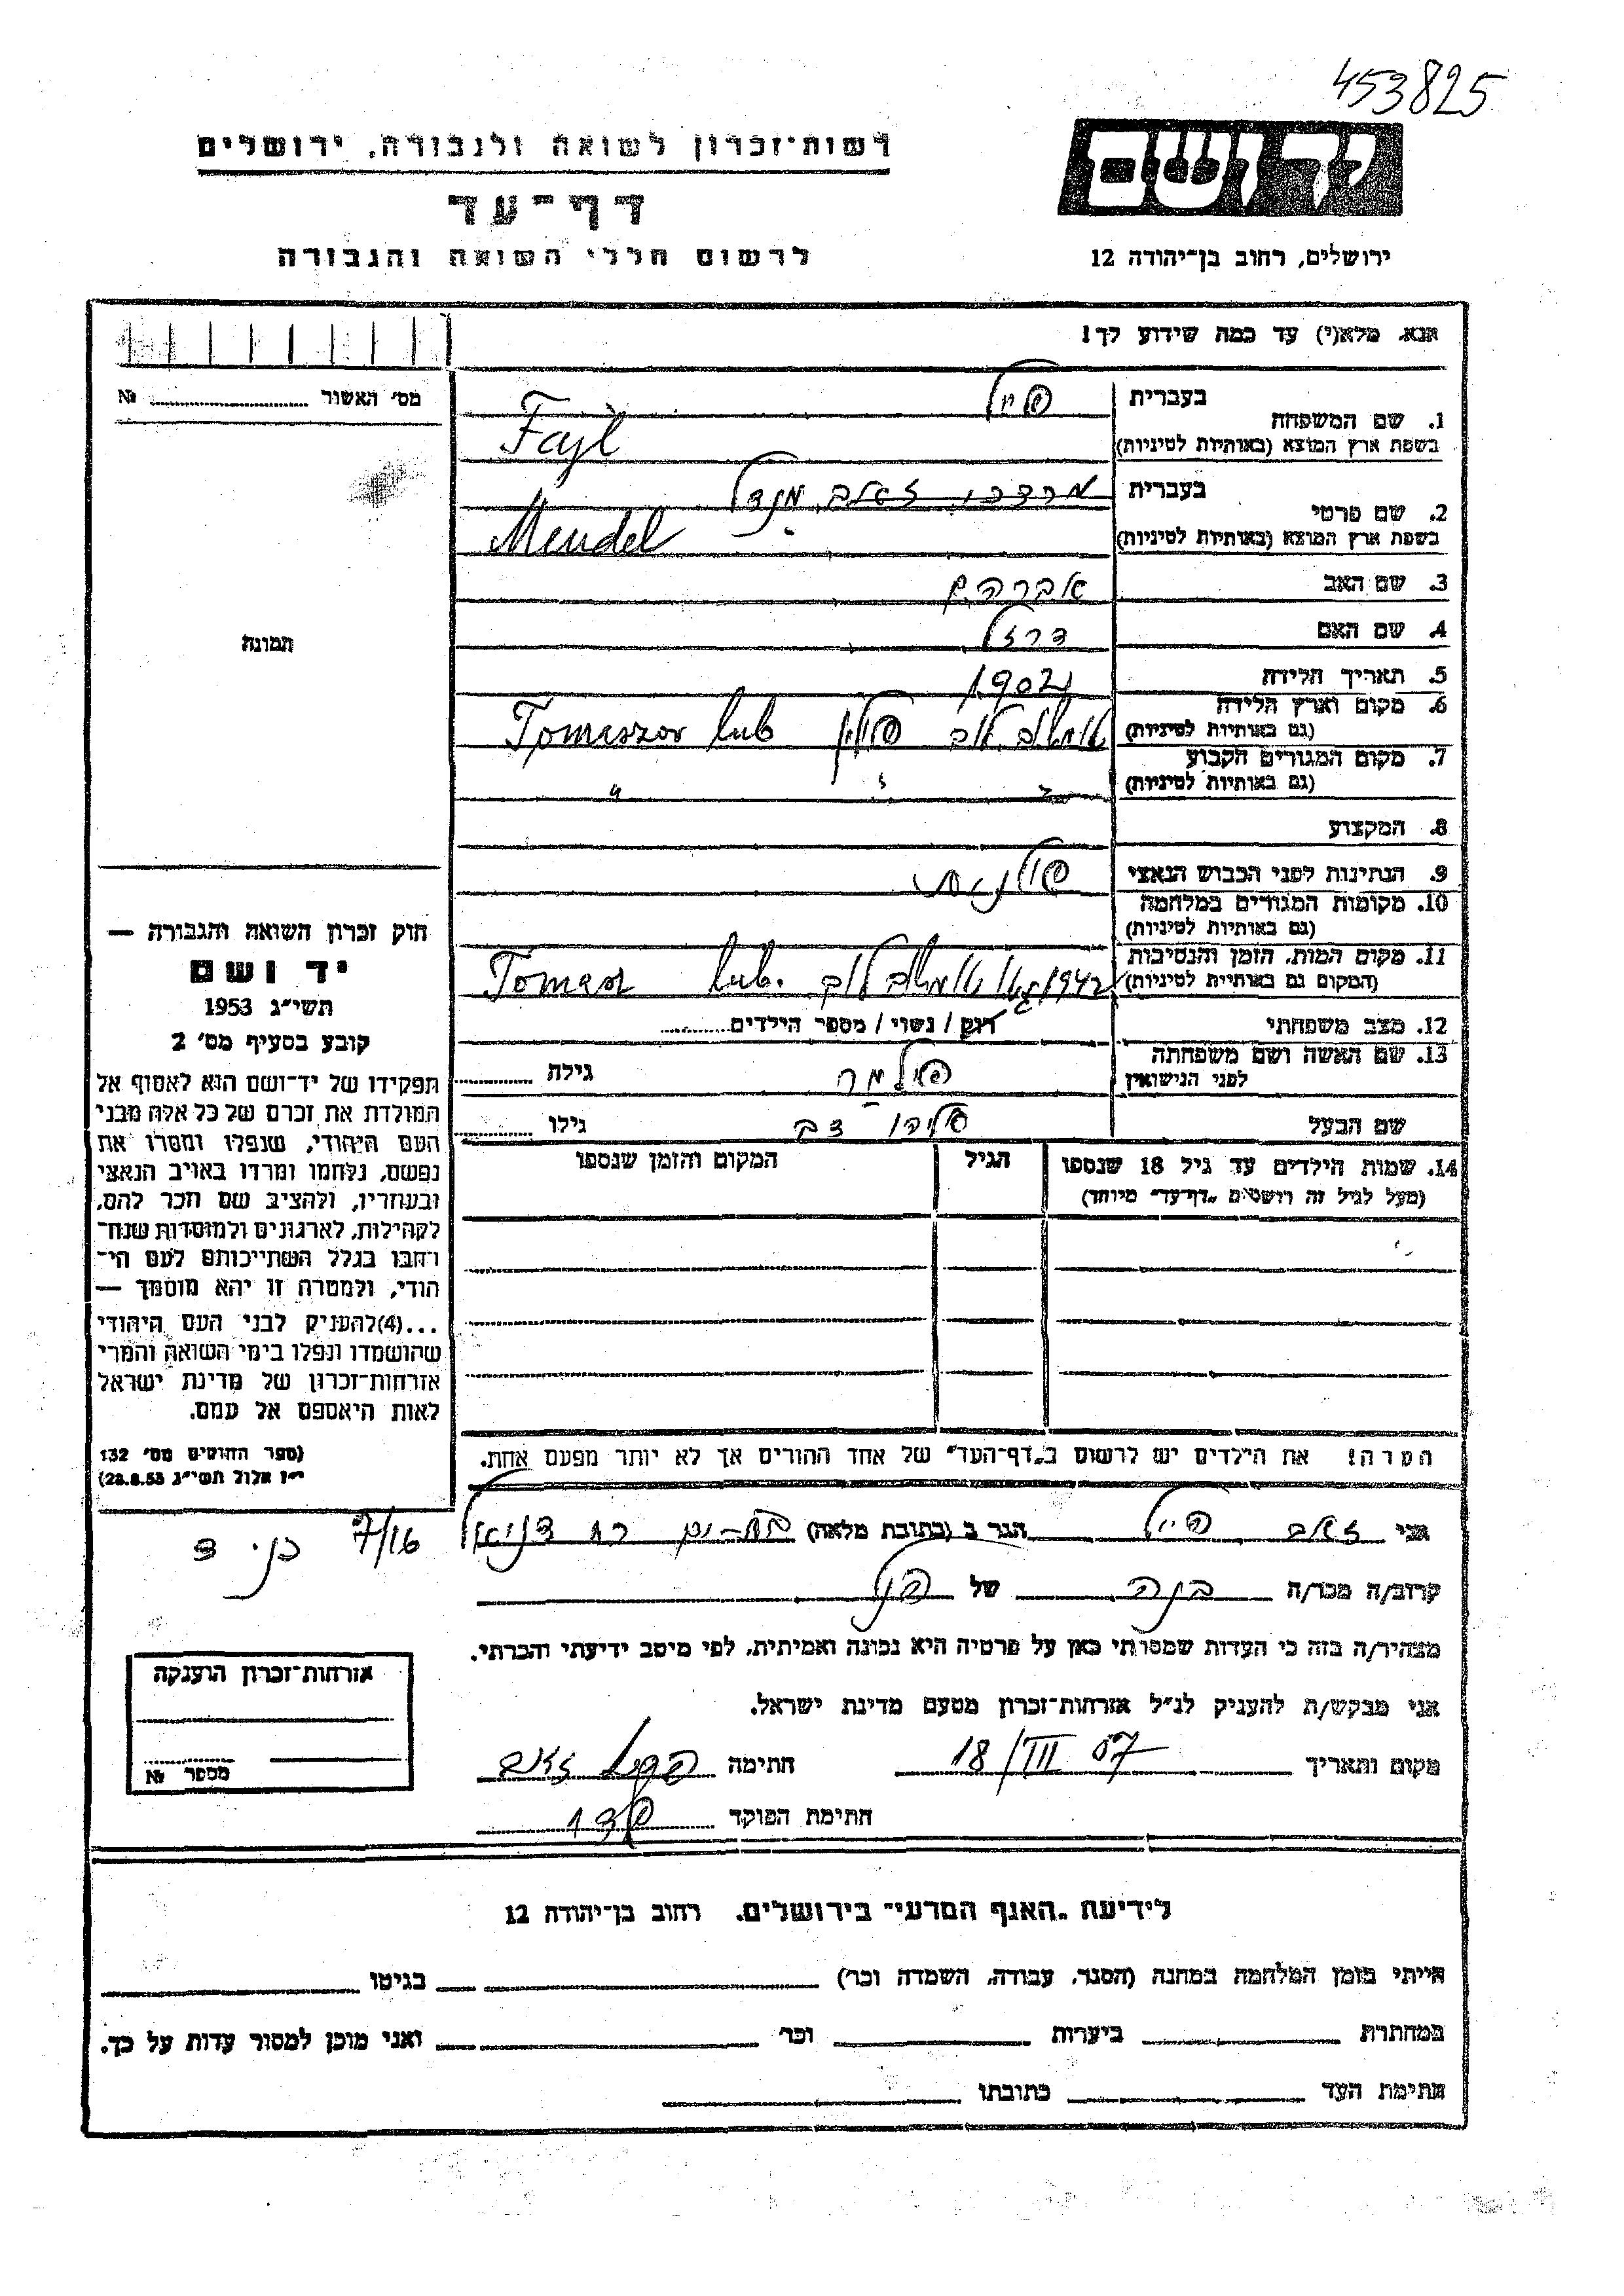 453825
יד ושם
רשות־זכרון לשואה ולגבורה, ירושלים
דף־עד
לרשום חללי השואה והגבורה
ירושלים, רחוב בן־יהודה 12
אנא, מלא(י) עד כמה שידוע לך!
מס' האשור № 
תמונה
1. שם המשפחה
בעברית פייל
בשפת ארץ המוצא (באותיות לטיניות) Fajl
2. שם פרטי
בעברית מרדכי זאב מנדל
בשפת ארץ המוצא (באותיות לטיניות) Mendel
3. שם האב אברהם
4. שם האם
5. תאריך הלידה 1902
6. מקום וארץ הלידה
(גם באותיות לטיניות) טומשוב לוב פולין Tomaszov lub
7. מקום המגורים הקבוע
(גם באותיות לטיניות) " " "
8. המקצוע
9. הנתינות לפני הכבוש הנאצי פולנית
10. מקומות המגורים במלחמה
(גם באותיות לטיניות)
11. מקום המות, הזמן והנסיבות
(המקום גם באותיות לטיניות) 1942 טומשוב לוב Tomasz lub.
12. מצב משפחתי רווק / נשוי / מספר הילדים
13. שם האשה ושם משפחתה
לפני הנישואין גילה
שם הבעל גילו
14. שמות הילדים עד גיל 18 שנספו
(מעל לגיל זה רושמים „דף־עד" מיוחד)
הגיל
המקום והזמן שנספו
הערה! את הילדים יש לרשום ב„דף־העד" של אחד ההורים אך לא יותר מפעם אחת.
חוק זכרון השואה והגבורה —
יד ושם
תשי"ג 1953
קובע בסעיף מס' 2
תפקידו של יד־ושם הוא לאסוף אל
המולדת את זכרם של כל אלה מבני
העם היהודי, שנפלו ומסרו את
נפשם, נלחמו ומרדו באויב הנאצי
ובעוזריו, ולהציב שם וזכר להם,
לקהילות, לארגונים ולמוסדות שנח־
רבו בגלל השתייכותם לעם הי־
הודי, ולמטרה זו יהא מוסמך —
...(4) להעניק לבני העם היהודי
שהושמדו ונפלו בימי השואה והמרי
אזרחות־זכרון של מדינת ישראל
לאות היאספם אל עמם.
(ספר החוקים מס' 132
י"ז אלול תשי"ג 28.8.53)
אני זאב פייל הגר ב (כתובת מלאה) בת-ים רח דניאל 7/16
קרוב/ה מכר/ה של
מצהיר/ה בזה כי העדות שמסרתי כאן על פרטיה היא נכונה ואמיתית, לפי מיטב ידיעתי והכרתי.
אני מבקש/ת להעניק לנ"ל אזרחות־זכרון מטעם מדינת ישראל.
מקום ותאריך 18/III 57 חתימה
חתימת הפוקד
אזרחות־זכרון הוענקה
מספר №
לידיעת „האגף המדעי" בירושלים, רחוב בן־יהודה 12
הייתי בזמן המלחמה במחנה (הסגר, עבודה, השמדה וכו') בגיטו
במחתרת ביערות וכו' ואני מוכן למסור עדות על כך.
חתימת העד כתובתו